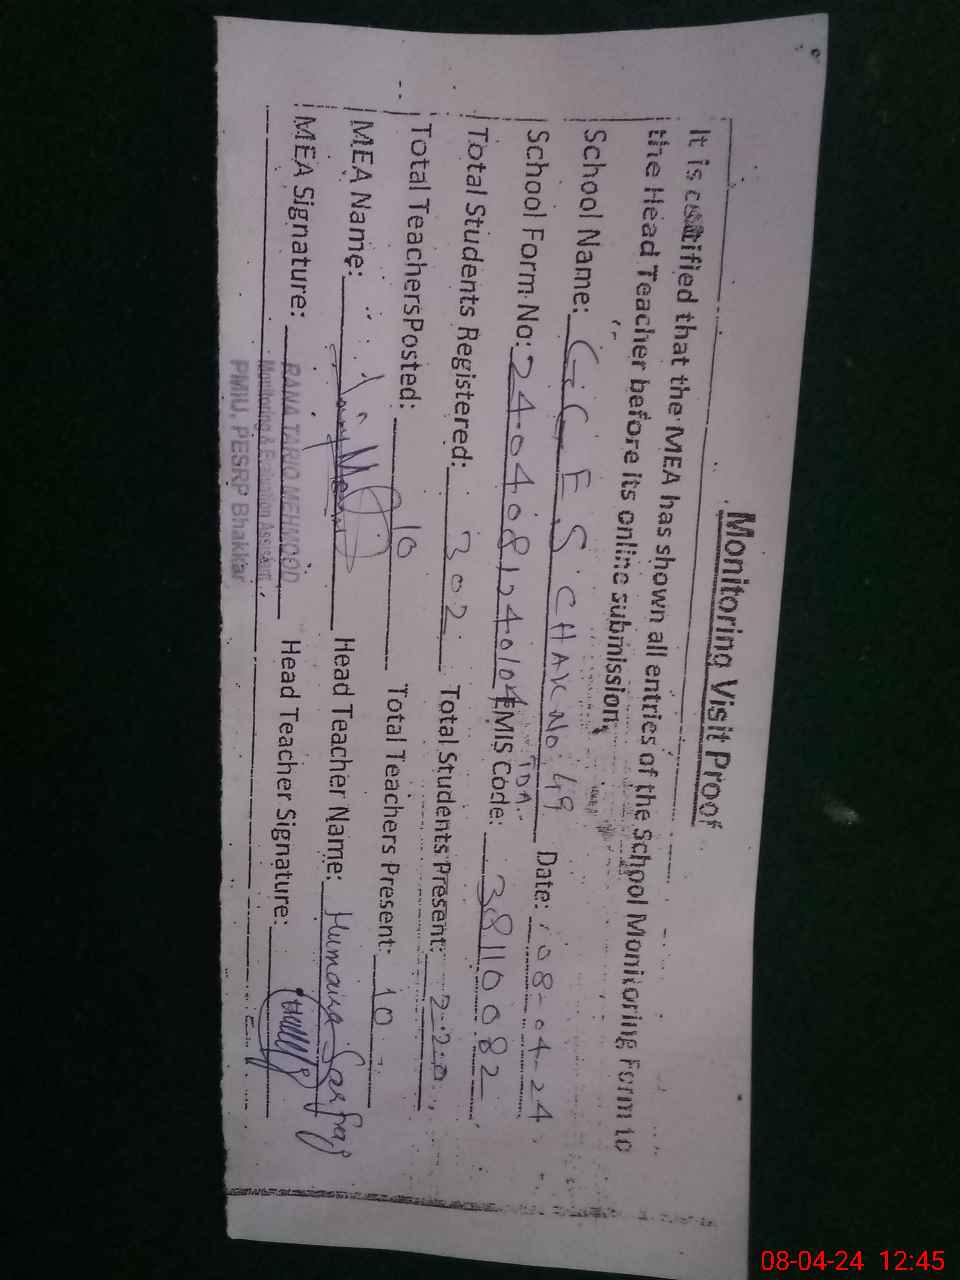 Monitoring Visit Proof
It is certified that the MEA has shown all entries of the School Monitoring Form to
the Head Teacher before its online submission.
School Name: G.G.E.S CHAK No. 49 TDA Date: 08-04-24
School Form No: 2404081240104 EMIS Code: 38110082
Total Students Registered: 302 Total Students Present: 220
Total Teachers Posted: 10 Total Teachers Present: 10
MEA Name: Head Teacher Name: Humaira Sarfraj
MEA Signature: Head Teacher Signature:
RANA TARIQ MEHMOOD
Monitoring & Evaluation Assistant
PMIU, PESRP Bhakkar
08-04-24 12:45